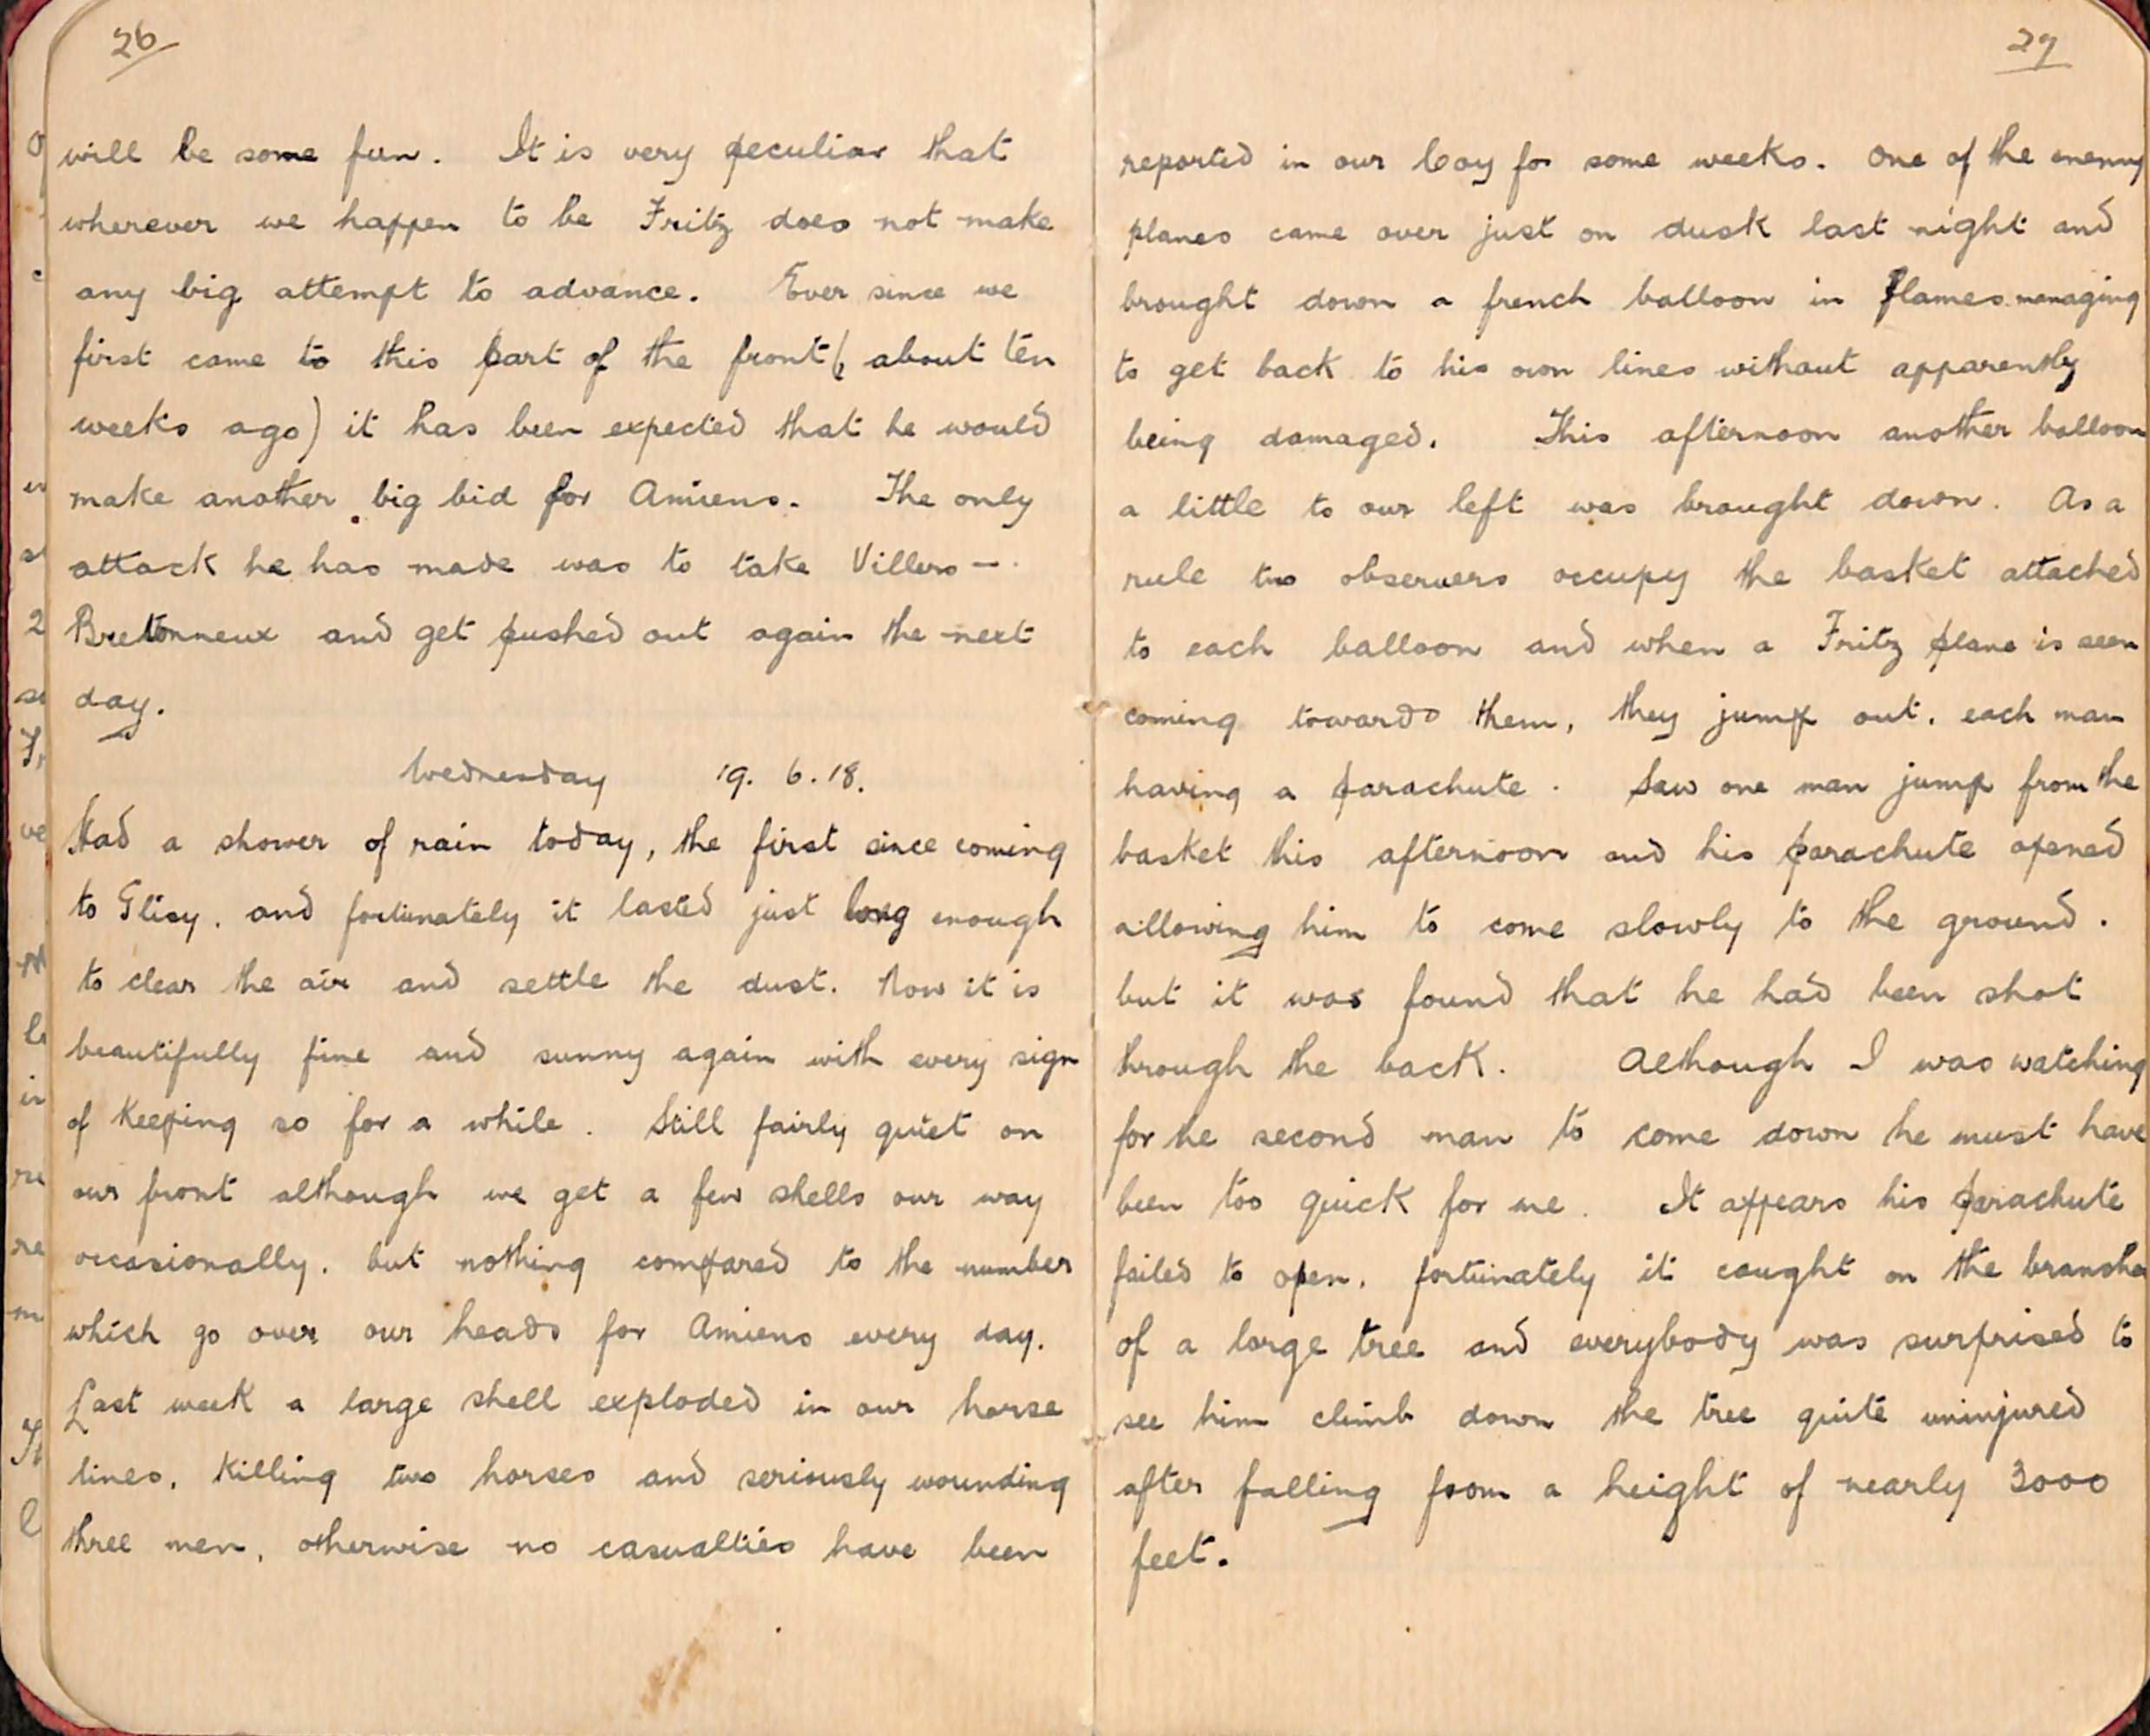 26
will be some fun. It is very peculiar that
wherever we happen to be Fritz does not make
any big attempt to advance. Ever since we
first came to this part of the front (about ten
weeks ago) it has been expected that he would
make another big bid for Amiens. The only
attack he has made was to take Villers -
Bretonneux and get pushed out again the next
day.
Wednesday 19. 6. 18.
Had a shower of rain today, the first since coming
to Glisy. and fortunately it lasted just long enough
to clear the air and settle the dust. Now it is
beautifully fine and sunny again with every sign
of Keeping so for a while. Still fairly quiet on
our front although we get a few shells our way
occasionally. but nothing compared to the number
which go over our heads for Amiens every day.
Last week a large shell exploded in our horse
lines. Killing two horses and seriously wounding
three men, otherwise no casualties have been
27
reported in our Coy for some weeks. One of the enemy
planes came over just on dusk last night and
brought down a french balloon in flames managing
to get back to his own lines without apparently
being damaged. This afternoon another balloon
a little to our left was brought down. As a
rule two observers occupy the basket attached
to each balloon and when a Fritz plane is seen
coming towards them, they jump out. each man
having a parachute. Saw one man jump from the
basket this afternoon and his parachute opened
allowing him to come slowly to the ground.
but it was found that he had been shot
through the back. Although I was watching
for the second man to come down he must have
been too quick for me. It appears his parachute
failed to open. fortunately it caught on the branches
of a large tree and everybody was surprised to
see him climb down the tree quite uninjured
after falling from a height of nearly 3000
feet.